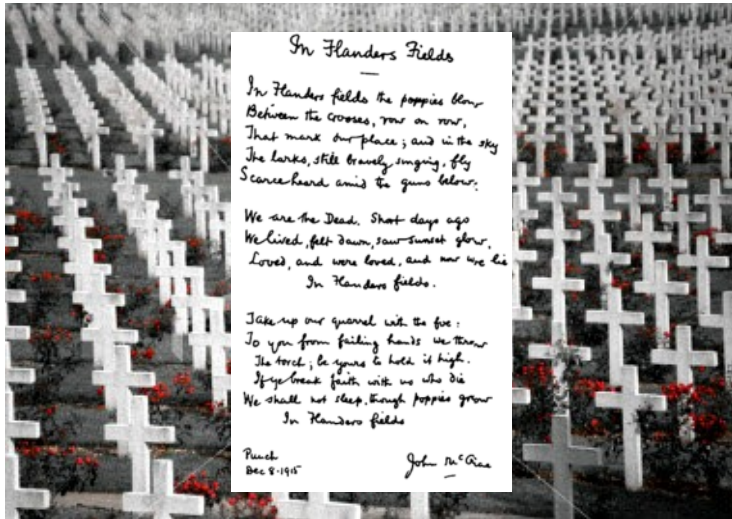 In Flanders Fields
In Flanders fields the poppies blow
Between the crosses, row on row,
That mark our place; and in the sky
The larks, still bravely singing, fly
Scarce heard amid the guns below.
We are the Dead. Short days ago
We lived, felt dawn, saw sunset glow,
Loved, and were loved, and now we lie
In Flanders fields.
Take up our quarrel with the foe:
To you from failing hands we throw
The torch; be yours to hold it high.
If ye break faith with us who die
We shall not sleep, though poppies grow
In Flanders fields
Punch
Dec 8·1915
John McCrae